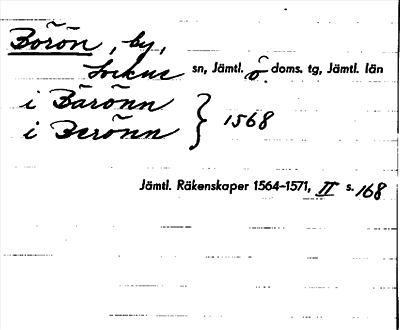 Börön, by,
Lockne sn, Jämtl. ö doms. tg, Jämtl. län
i Bärönn
i Berönn } 1568
Jämtl. Räkenskaper 1564-1571, II s. 168